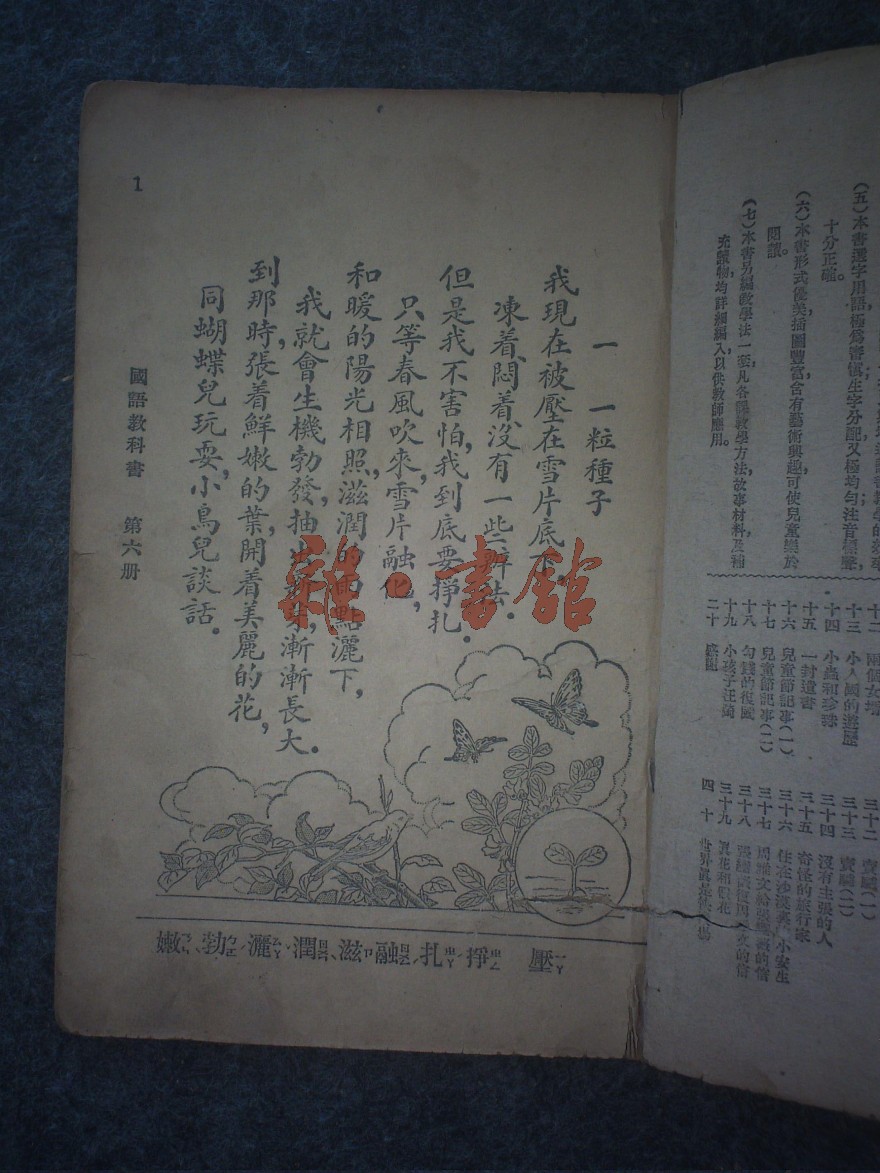 (五)本書選字用語極爲審慎生字分配又極均勻注音標聲,
十分正確。
(六)本書形式優美插圖豐富含有藝術興趣可使兒童樂於
閱讀。
(七)本書另編教學法一套凡各課教學方法故事材料及補
充讀物,均詳細編入以供教師應用。
十二 兩個女
十三 小人國的遊歷
十四 小蟲和珍珠
十五 一封遺書
十六 兒童節記事(一)
十七 兒童節記事(二)
十八 句踐的復國
十九 小孩子汪踦
二十
三十二 賣(一)
三十三 賣(二)
三十四 沒有主張的人
三十五 奇怪的旅行家
三十六 住在沙漠裏小安生
三十七
三十八
三十九 真花和假花
四十 世界
一 一粒種子
我現在被壓在雪片底下,
凍着,悶着,沒有一些辦法.
但是我不害怕,我到底要掙扎.
只等春風吹來,雪片融化,
和暖的陽光相照,滋潤的雨點灑下,
我就會生機勃發,抽出,漸漸長大.
到那時,張着鮮嫩的葉,開着美麗的花,
同蝴蝶兒玩耍,小鳥兒談話.
壓 掙 扎 融 滋 潤 灑 勃 嫩
國語教科書 第六册
1
雜·書館